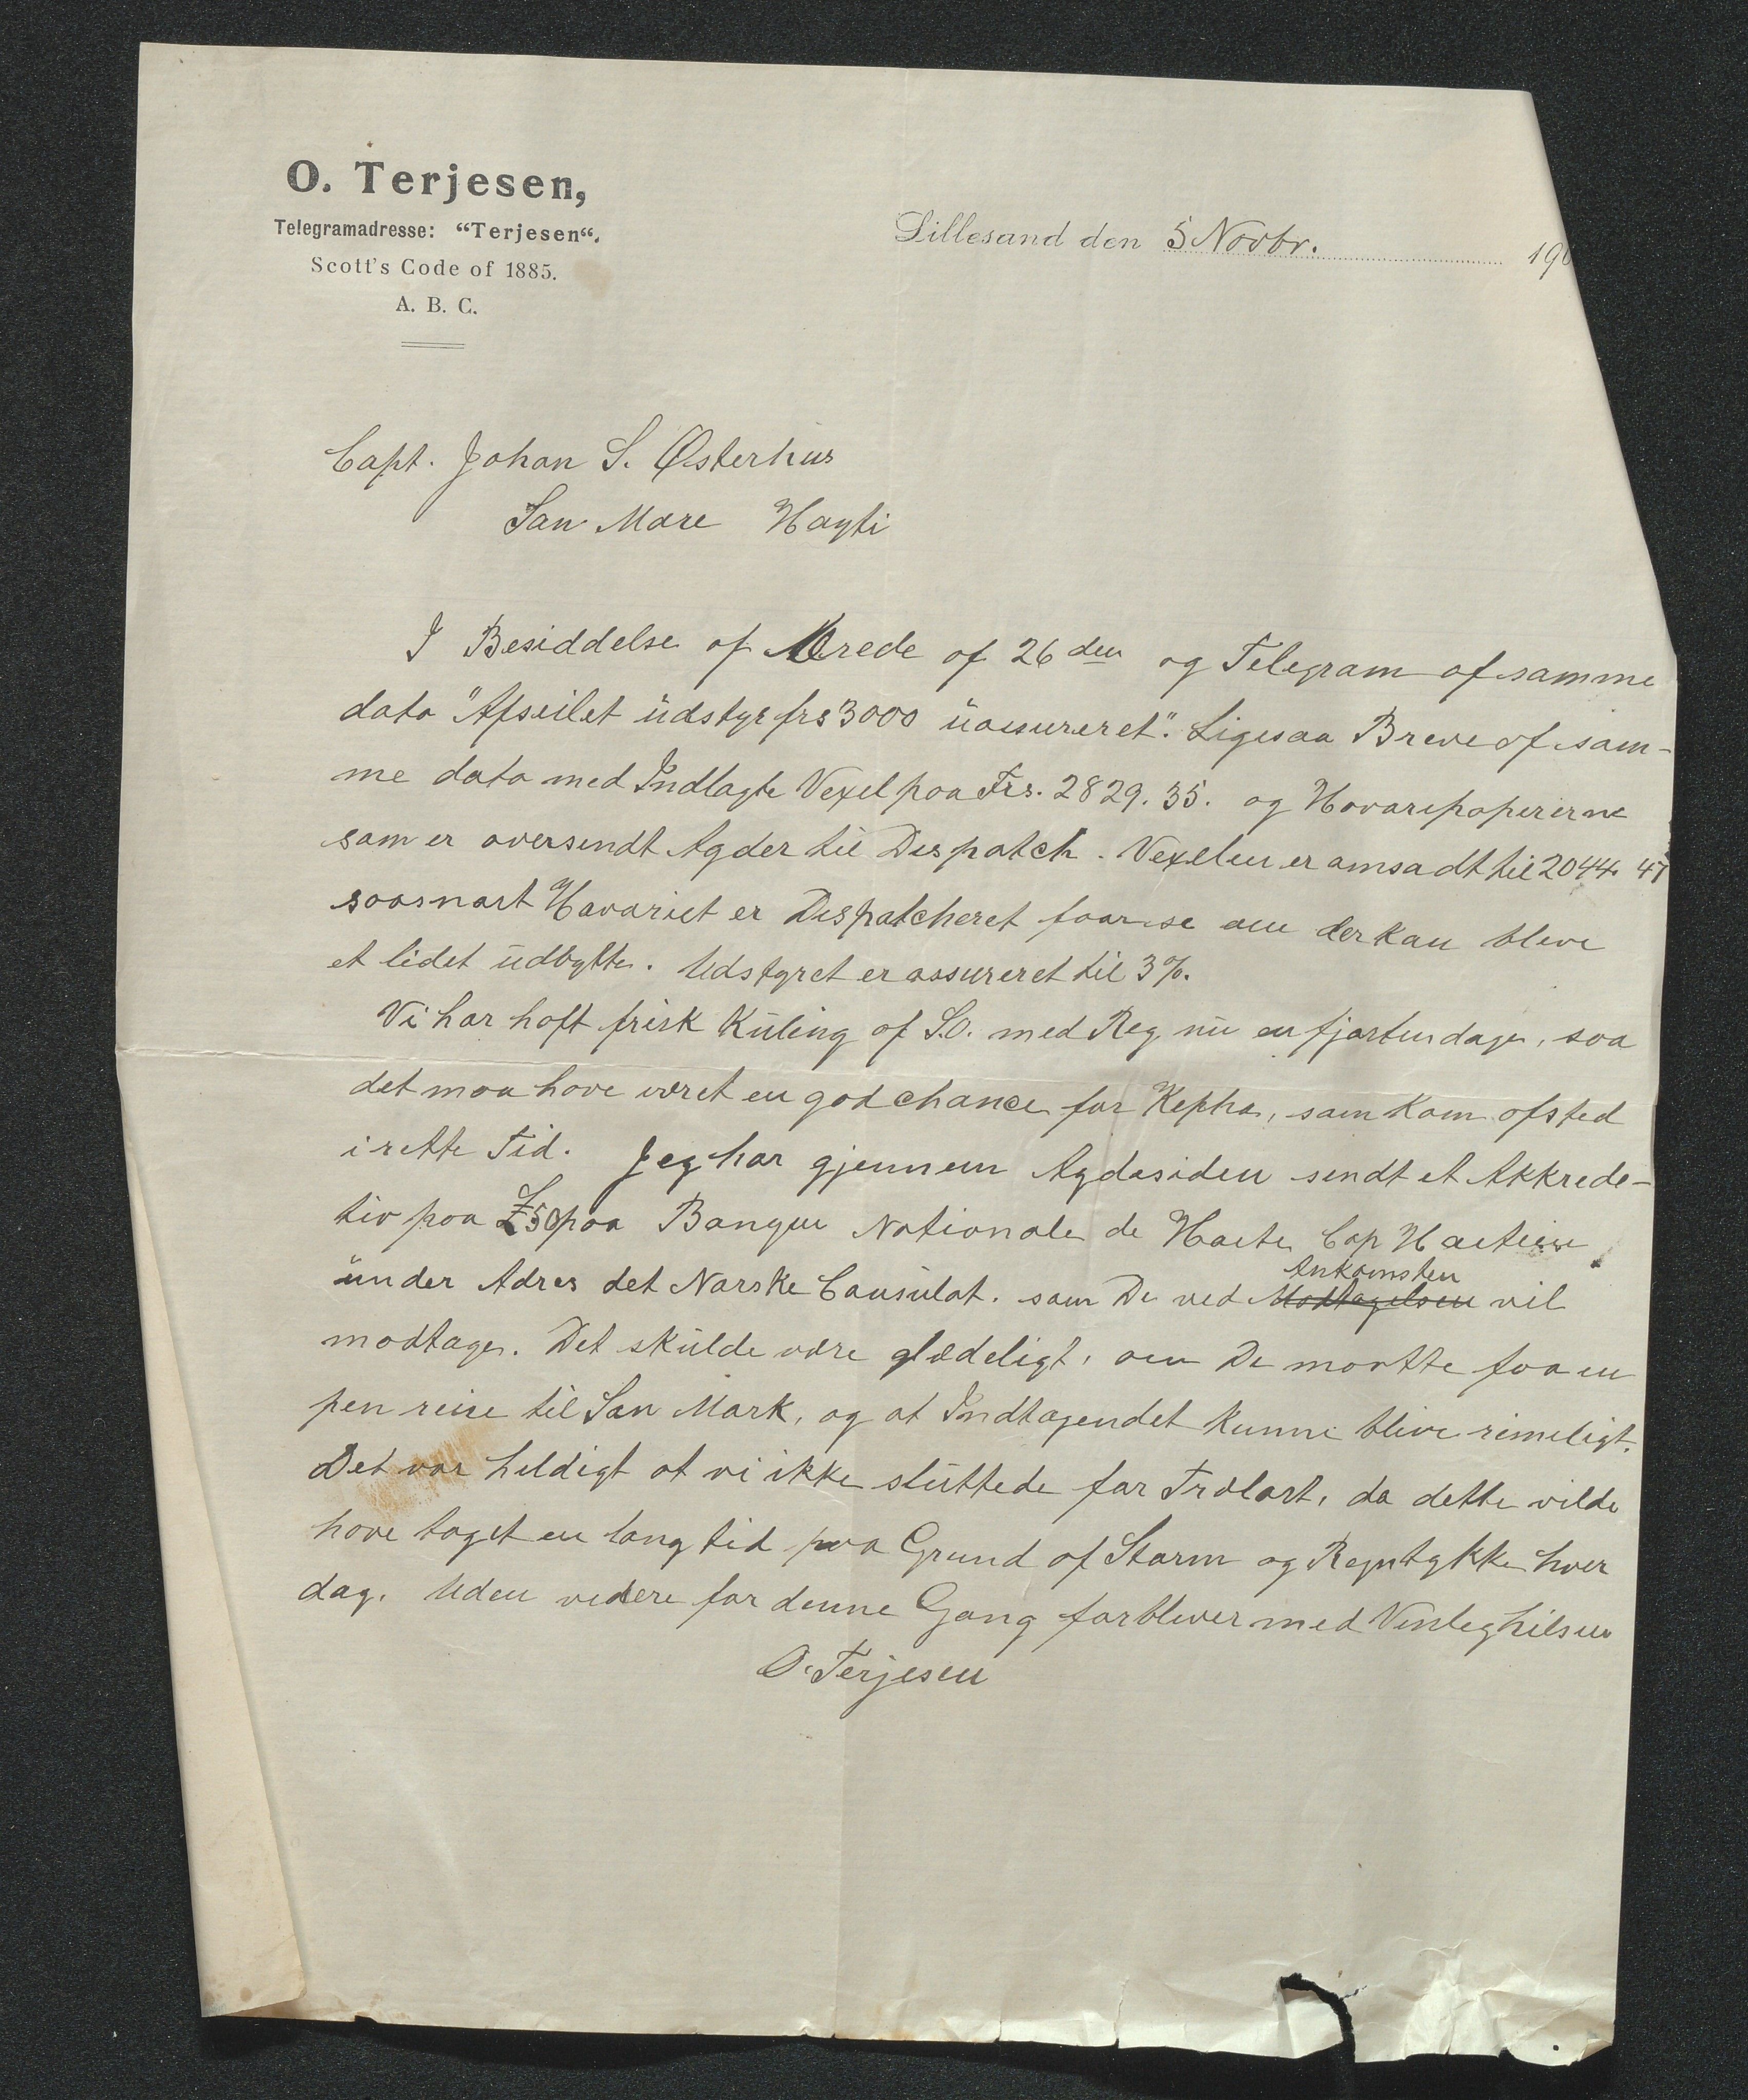 O. Terjesen,
Telegramadresse: “Terjesen“.
Scott's Code of 1885.
A. B. C.
Lillesand den 5 Novbr. 190
Capt. Johan S. Østerhus
San Marc Hayti
I Besiddelse af Ærede af 26 den og Telegram af samme
dato "Afseilet udstyr frs 3000 uassureret". Ligesaa Breve af sam-
me dato med Indlagte Vexel paa Frs. 2829.35. og Havaripapirerne
som er oversendt Agder til Despatch. Vexelen er omsadt til 2044. 47
saasnart Havariet er Despatcheret faar se om der kan blive
et lidet udbytte. Udstyret er assureret til 3%.
Vi har haft frisk Kuling af S.O. med Reg nu en fjorten dage, saa
det maa have været en god chance for Kepha, som kom afsted
i rette Tid. Jeg har gjennem Agdesiden sendt et Akkrede-
tiv paa £50 paa Banque Nationale de Haete Cap Haetiene
under Adres det Norske Consulat. som De ved Modtagelsen Ankomsten vil
modtage. Det skulde være glædeligt, om De maatte faa en
pen reise til San Mark, og at Indtagendet kunne blive rimeligt.
Det var heldigt at vi ikke sluttede for Trælast, da dette vilde
have taget en lang tid paa Grund af Storm og Regntykke hver
dag. Uden videre for denne Gang forbliver med Venlig hilsen
O. Terjesen